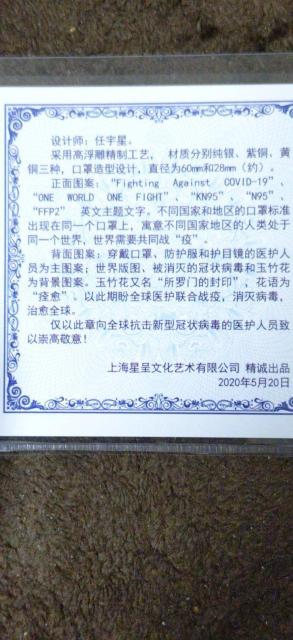 设计师：任宇星。
采用高浮雕精制工艺， 材质分别纯银、紫铜、黄
铜三种，口罩造型设计，直径为60mm和28mm（约）。
正面图案：“Fighting Against COVID-19”、
“ONE WORLD ONE FIGHT”、“KN95”、“N95”、
“FFP2” 英文主题文字。不同国家和地区的口罩标准
出现在同一个口罩上，寓意不同国家地区的人类处于
同一个世界，世界需要共同战“疫”。
背面图案：穿戴口罩、防护服和护目镜的医护人
员为主图案；世界版图、被消灭的冠状病毒和玉竹花
为背景图案。玉竹花又名“所罗门的封印”，花语为
“痊愈”。以此期盼全球医护联合战疫，消灭病毒，
治愈全球。
仅以此章向全球抗击新型冠状病毒的医护人员致
以崇高敬意！
上海星呈文化艺术有限公司 精诚出品
2020年5月20日